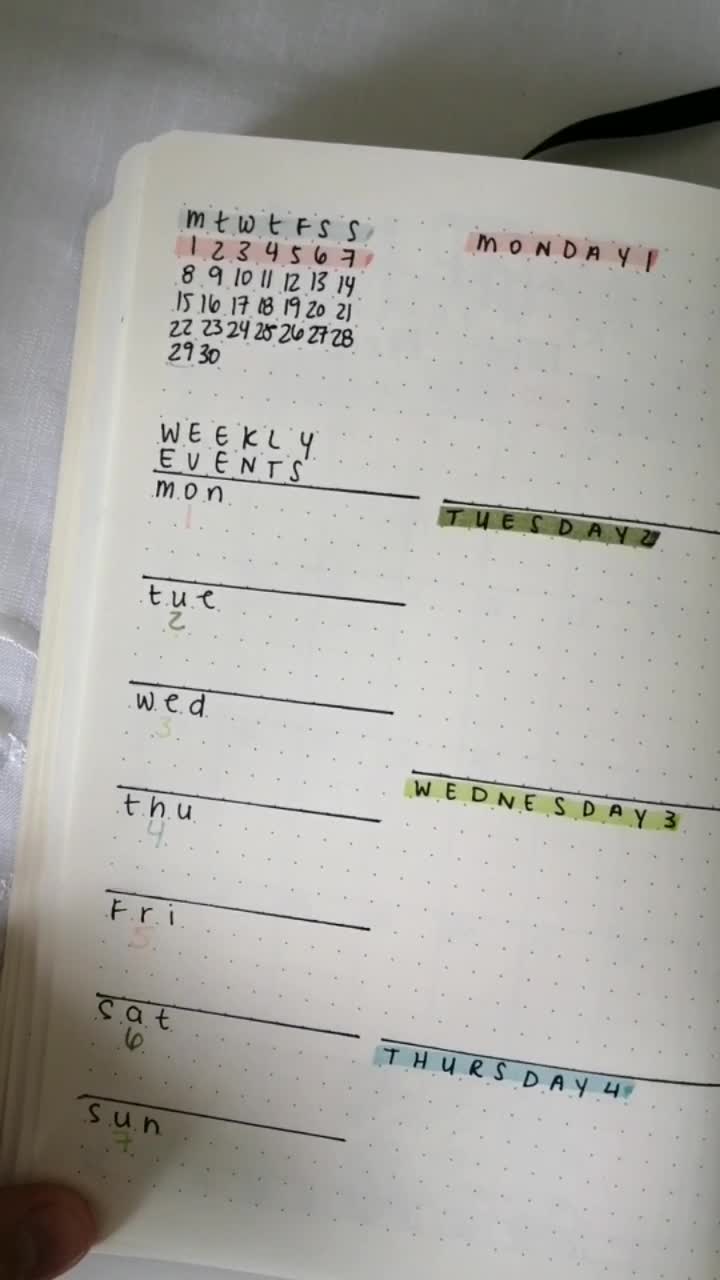 m t w t F S S
1 2 3 4 5 6 7
8 9 10 11 12 13 14
15 16 17 18 19 20 21
22 23 24 25 26 27 28
29 30
WEEKLY
EVENTS
mon
1
tue
2
wed
3
thu
4
Fri
5
sat
6
sun
7
MONDAY 1
TUESDAY 2
WEDNESDAY 3
THURSDAY 4